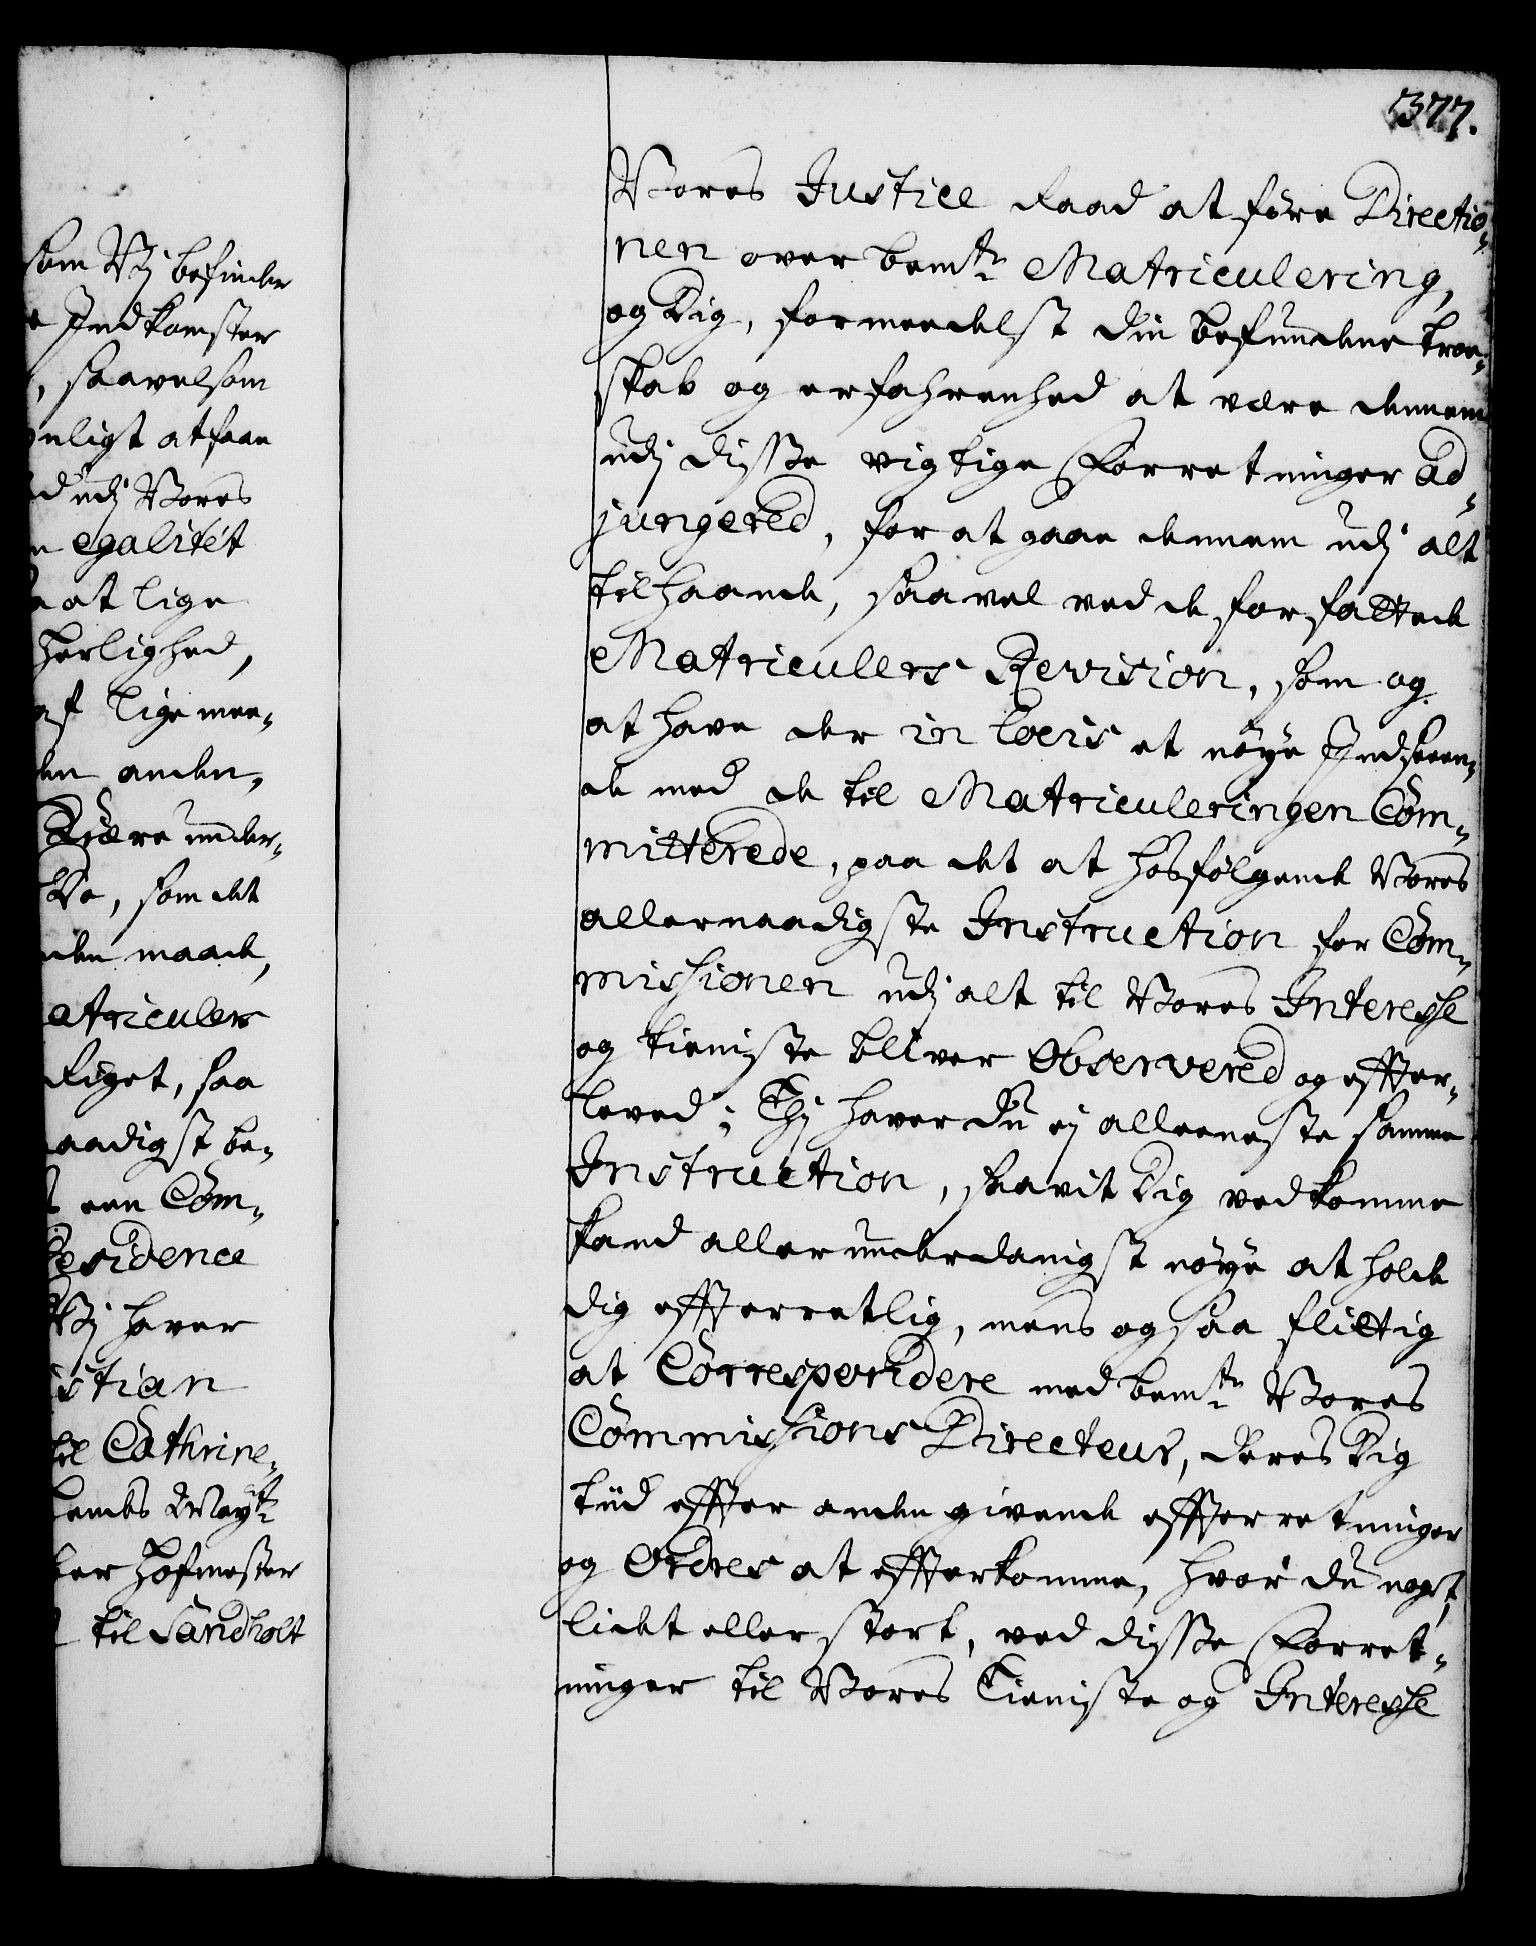 som Vij befinder
Indkomster
, saavelsom
nligt at faae
d udj Vores
egalitét
at lige
herlighed,
af lige mee-
den anden,
Qvære under-
De, som det
den maade,
atriculers
Riget, saa
aadigst be-
een Com-
Residence
Vij haver
istian
til Cathrine-
Hendes Mayts
Hofmester
til Sandholt
377.
Vores Justice Raad at føre Directio-
nen over bemte Matriculering,
og Dig, formeedelst din befundene troe-
skab og erfahrenhed at være dennem
udj disse vigtige Forretninger Ad-
jungered, for at gaae dennem udj alt
tilhaande, saavel ved de forfattede
Matriculers Revision, som og
at have der in locis et nøye Indseen-
de med de til Matriculeringen Com-
mitterede, paa det at hosfølgende Vores
allernaadigste Instruction for Com-
missionen udj alt til Vores Interesse
og tieniste bliver Observered og effter-
leved; Thj haver du ej alleeneste samme
Instruction, saavit Dig vedkomme
kand allerunderdanigst nøye at holde
dig effterretlig, mens og saa flittig
at Correspondere med bemte Vores
Commissions Directeur, deres Dig
tiid effter anden givende effterretninger
og Ordres at effterkomme, hvor du noget,
lidet eller stort, ved disse Forret-
ninger til Vores Tieniste og Interesse